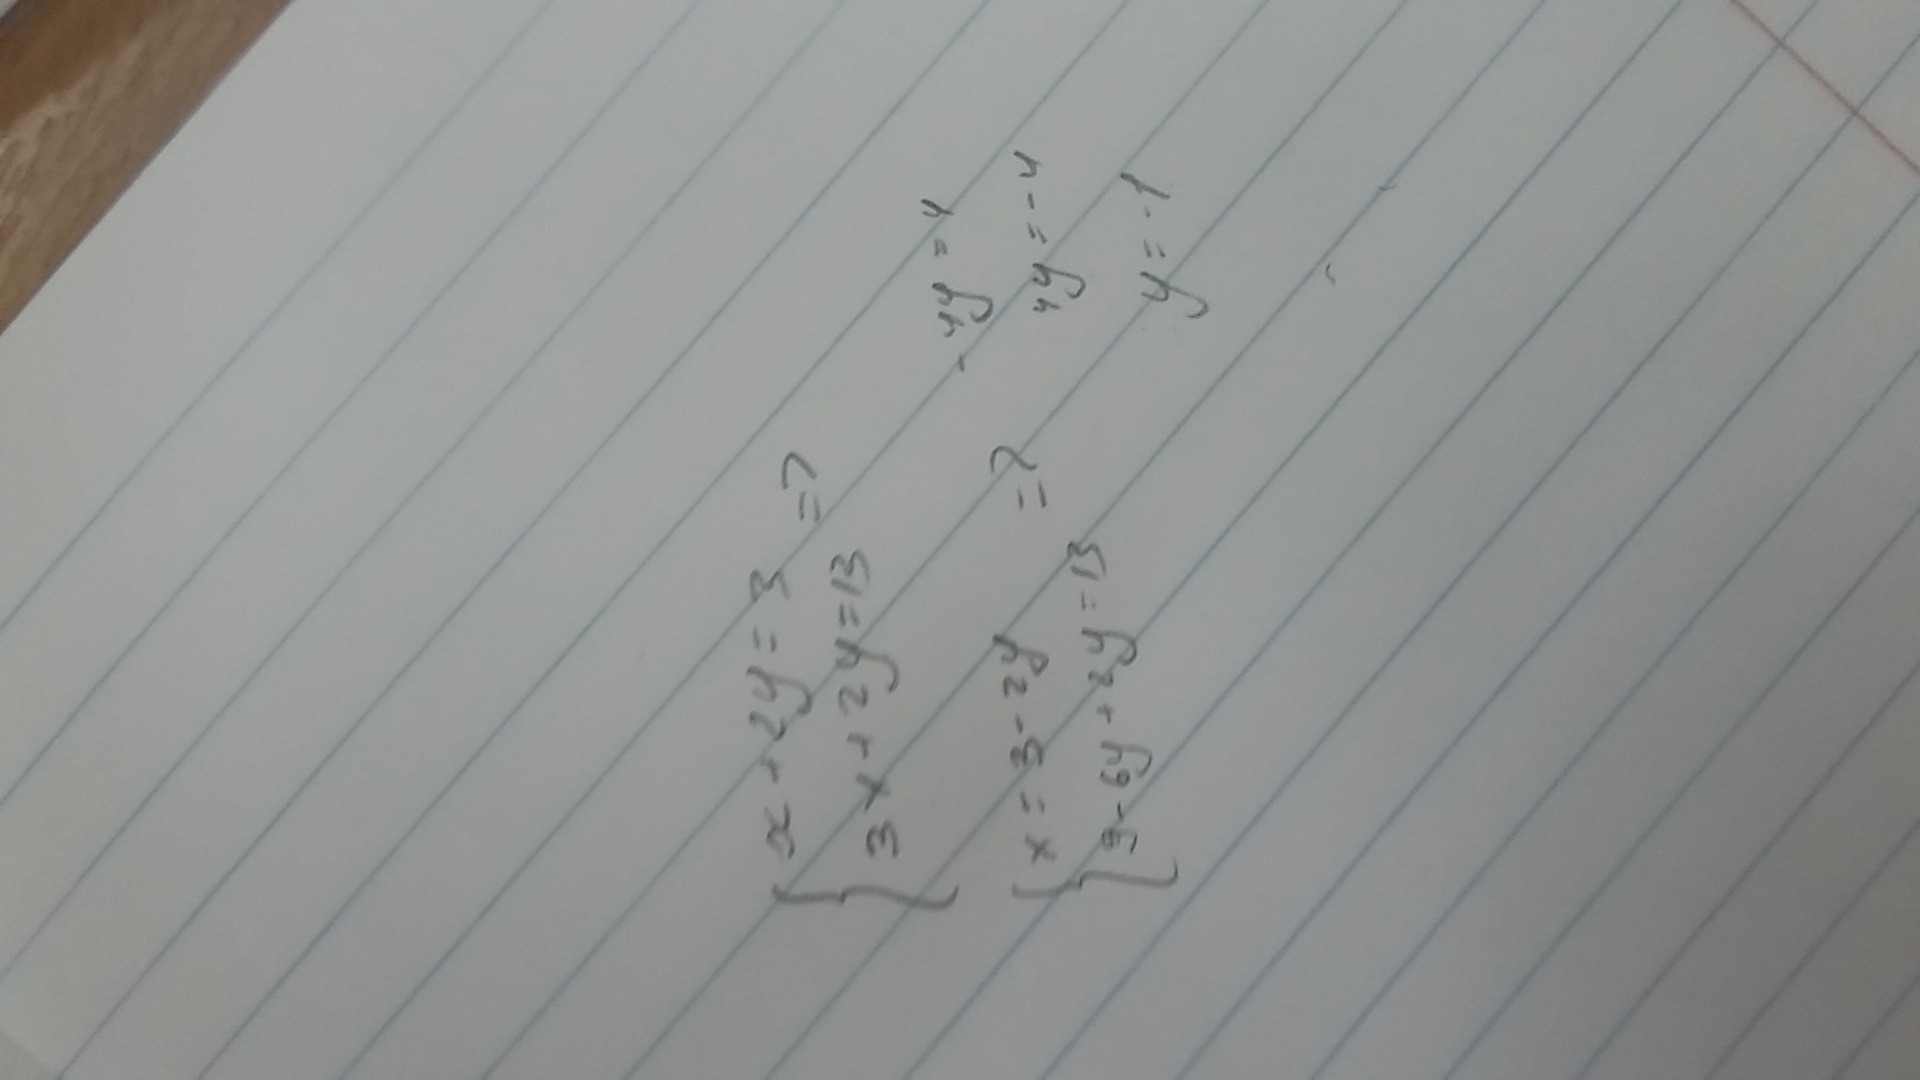 x + 2y = 3 =>
3x + 2y = 13
x = 3 - 2y =>
9 - 6y + 2y = 13
- 4y = 4
4y = - 4
y = -1